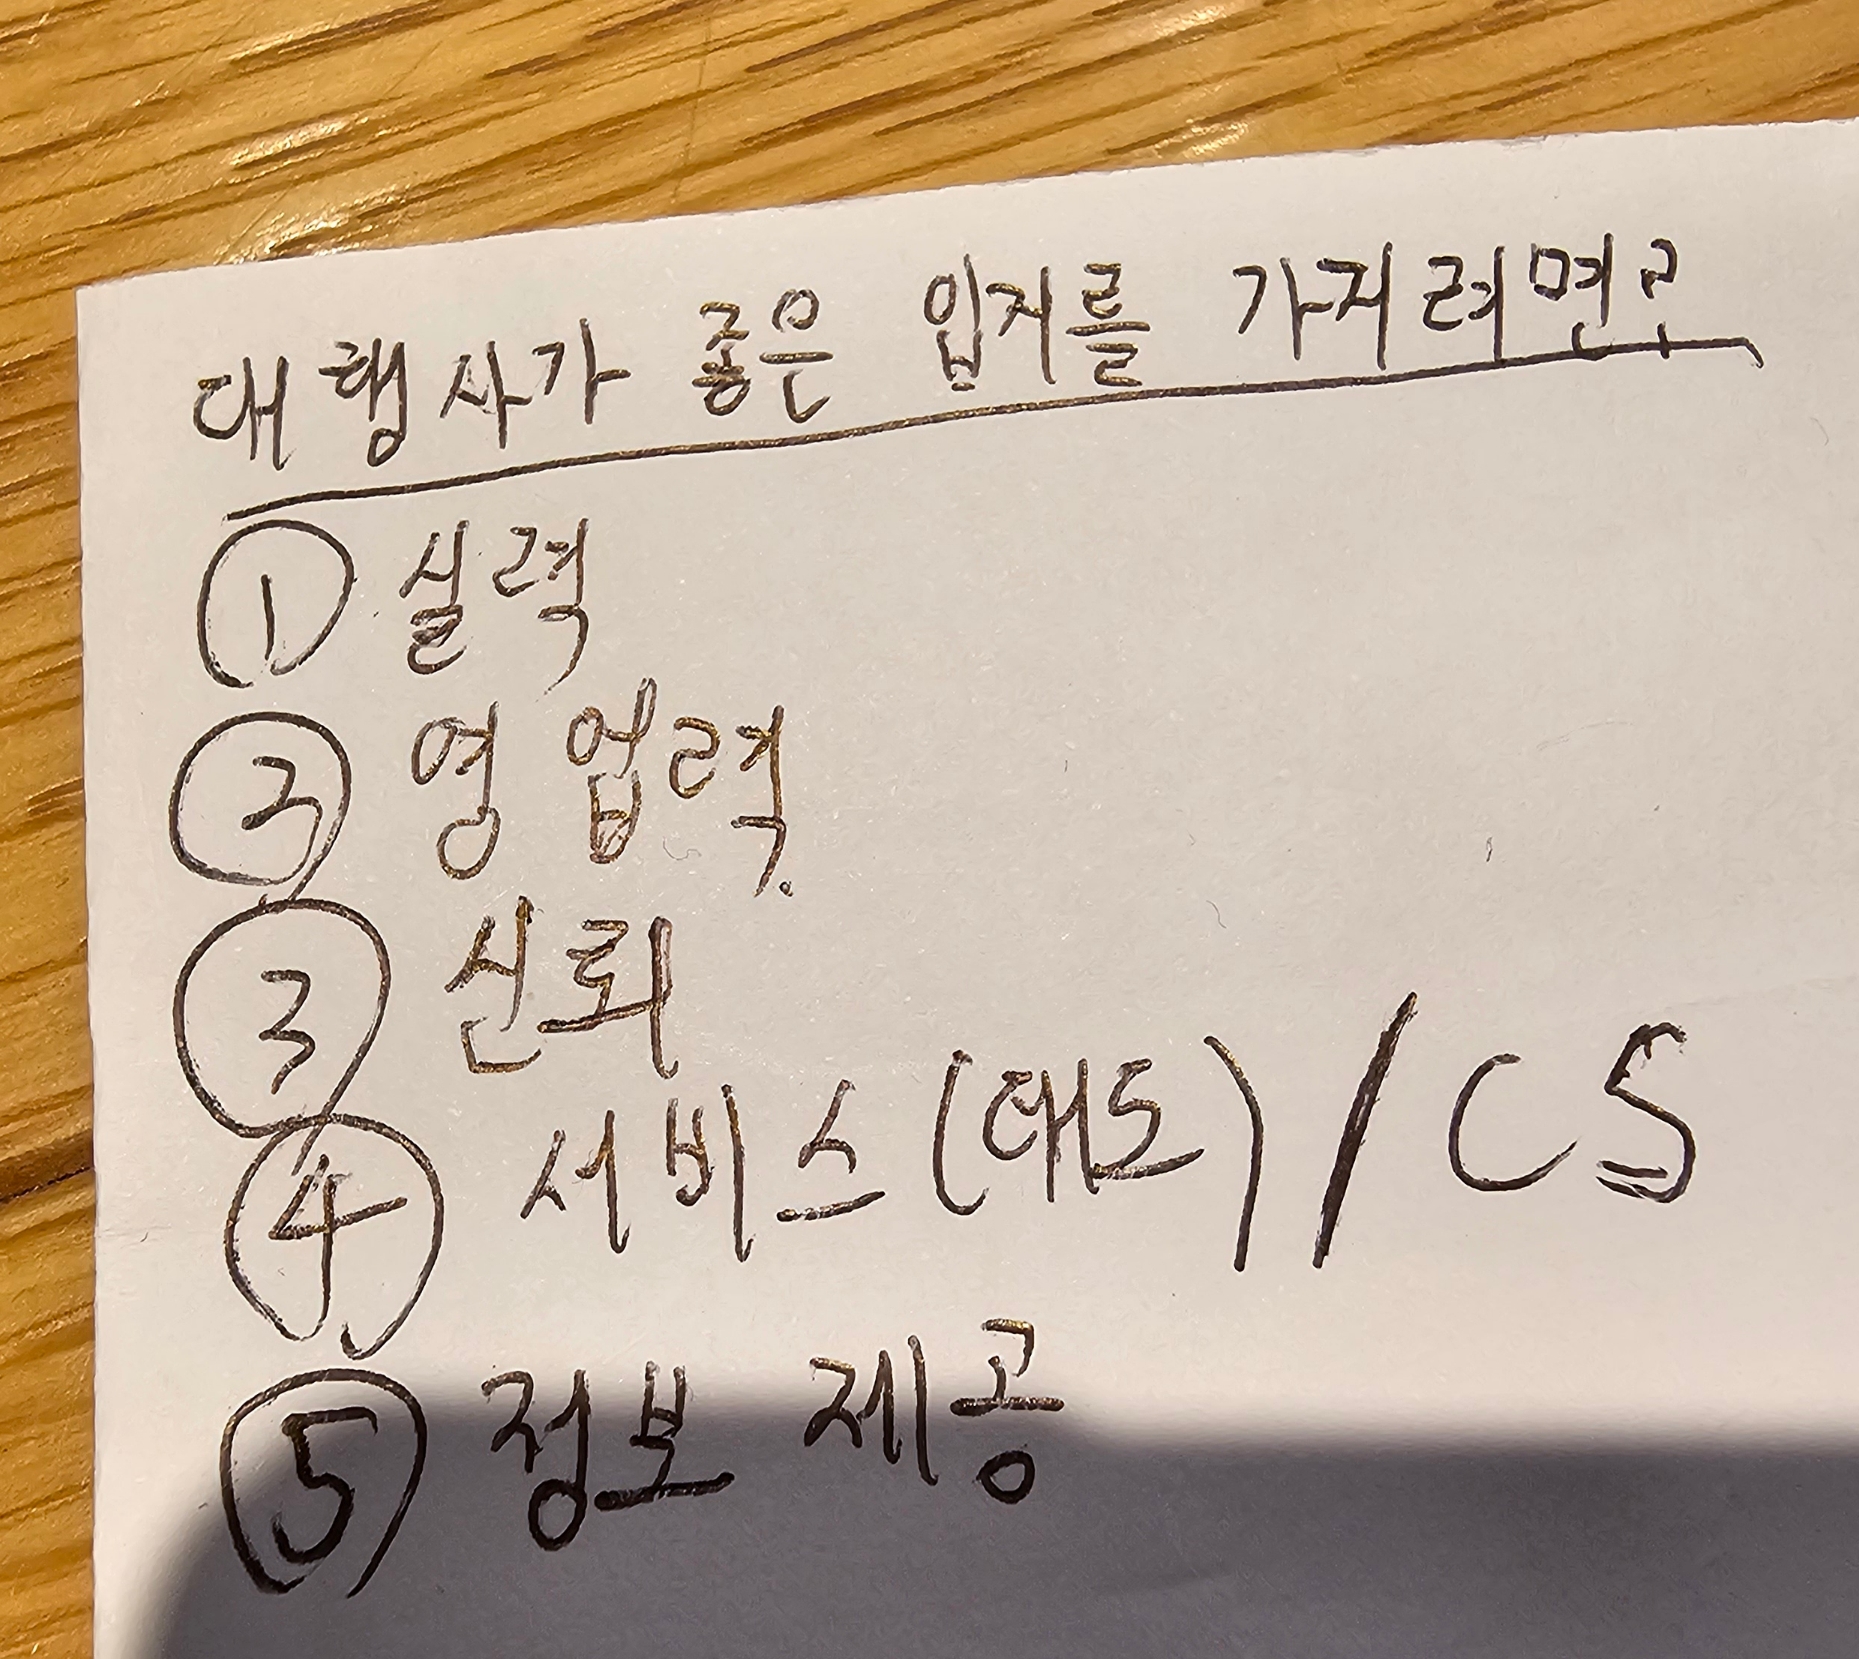 대행사가 좋은 입지를 가지려면?
① 실력
② 영업력.
③ 신뢰
④ 서비스(태도) / CS
⑤ 정보 제공